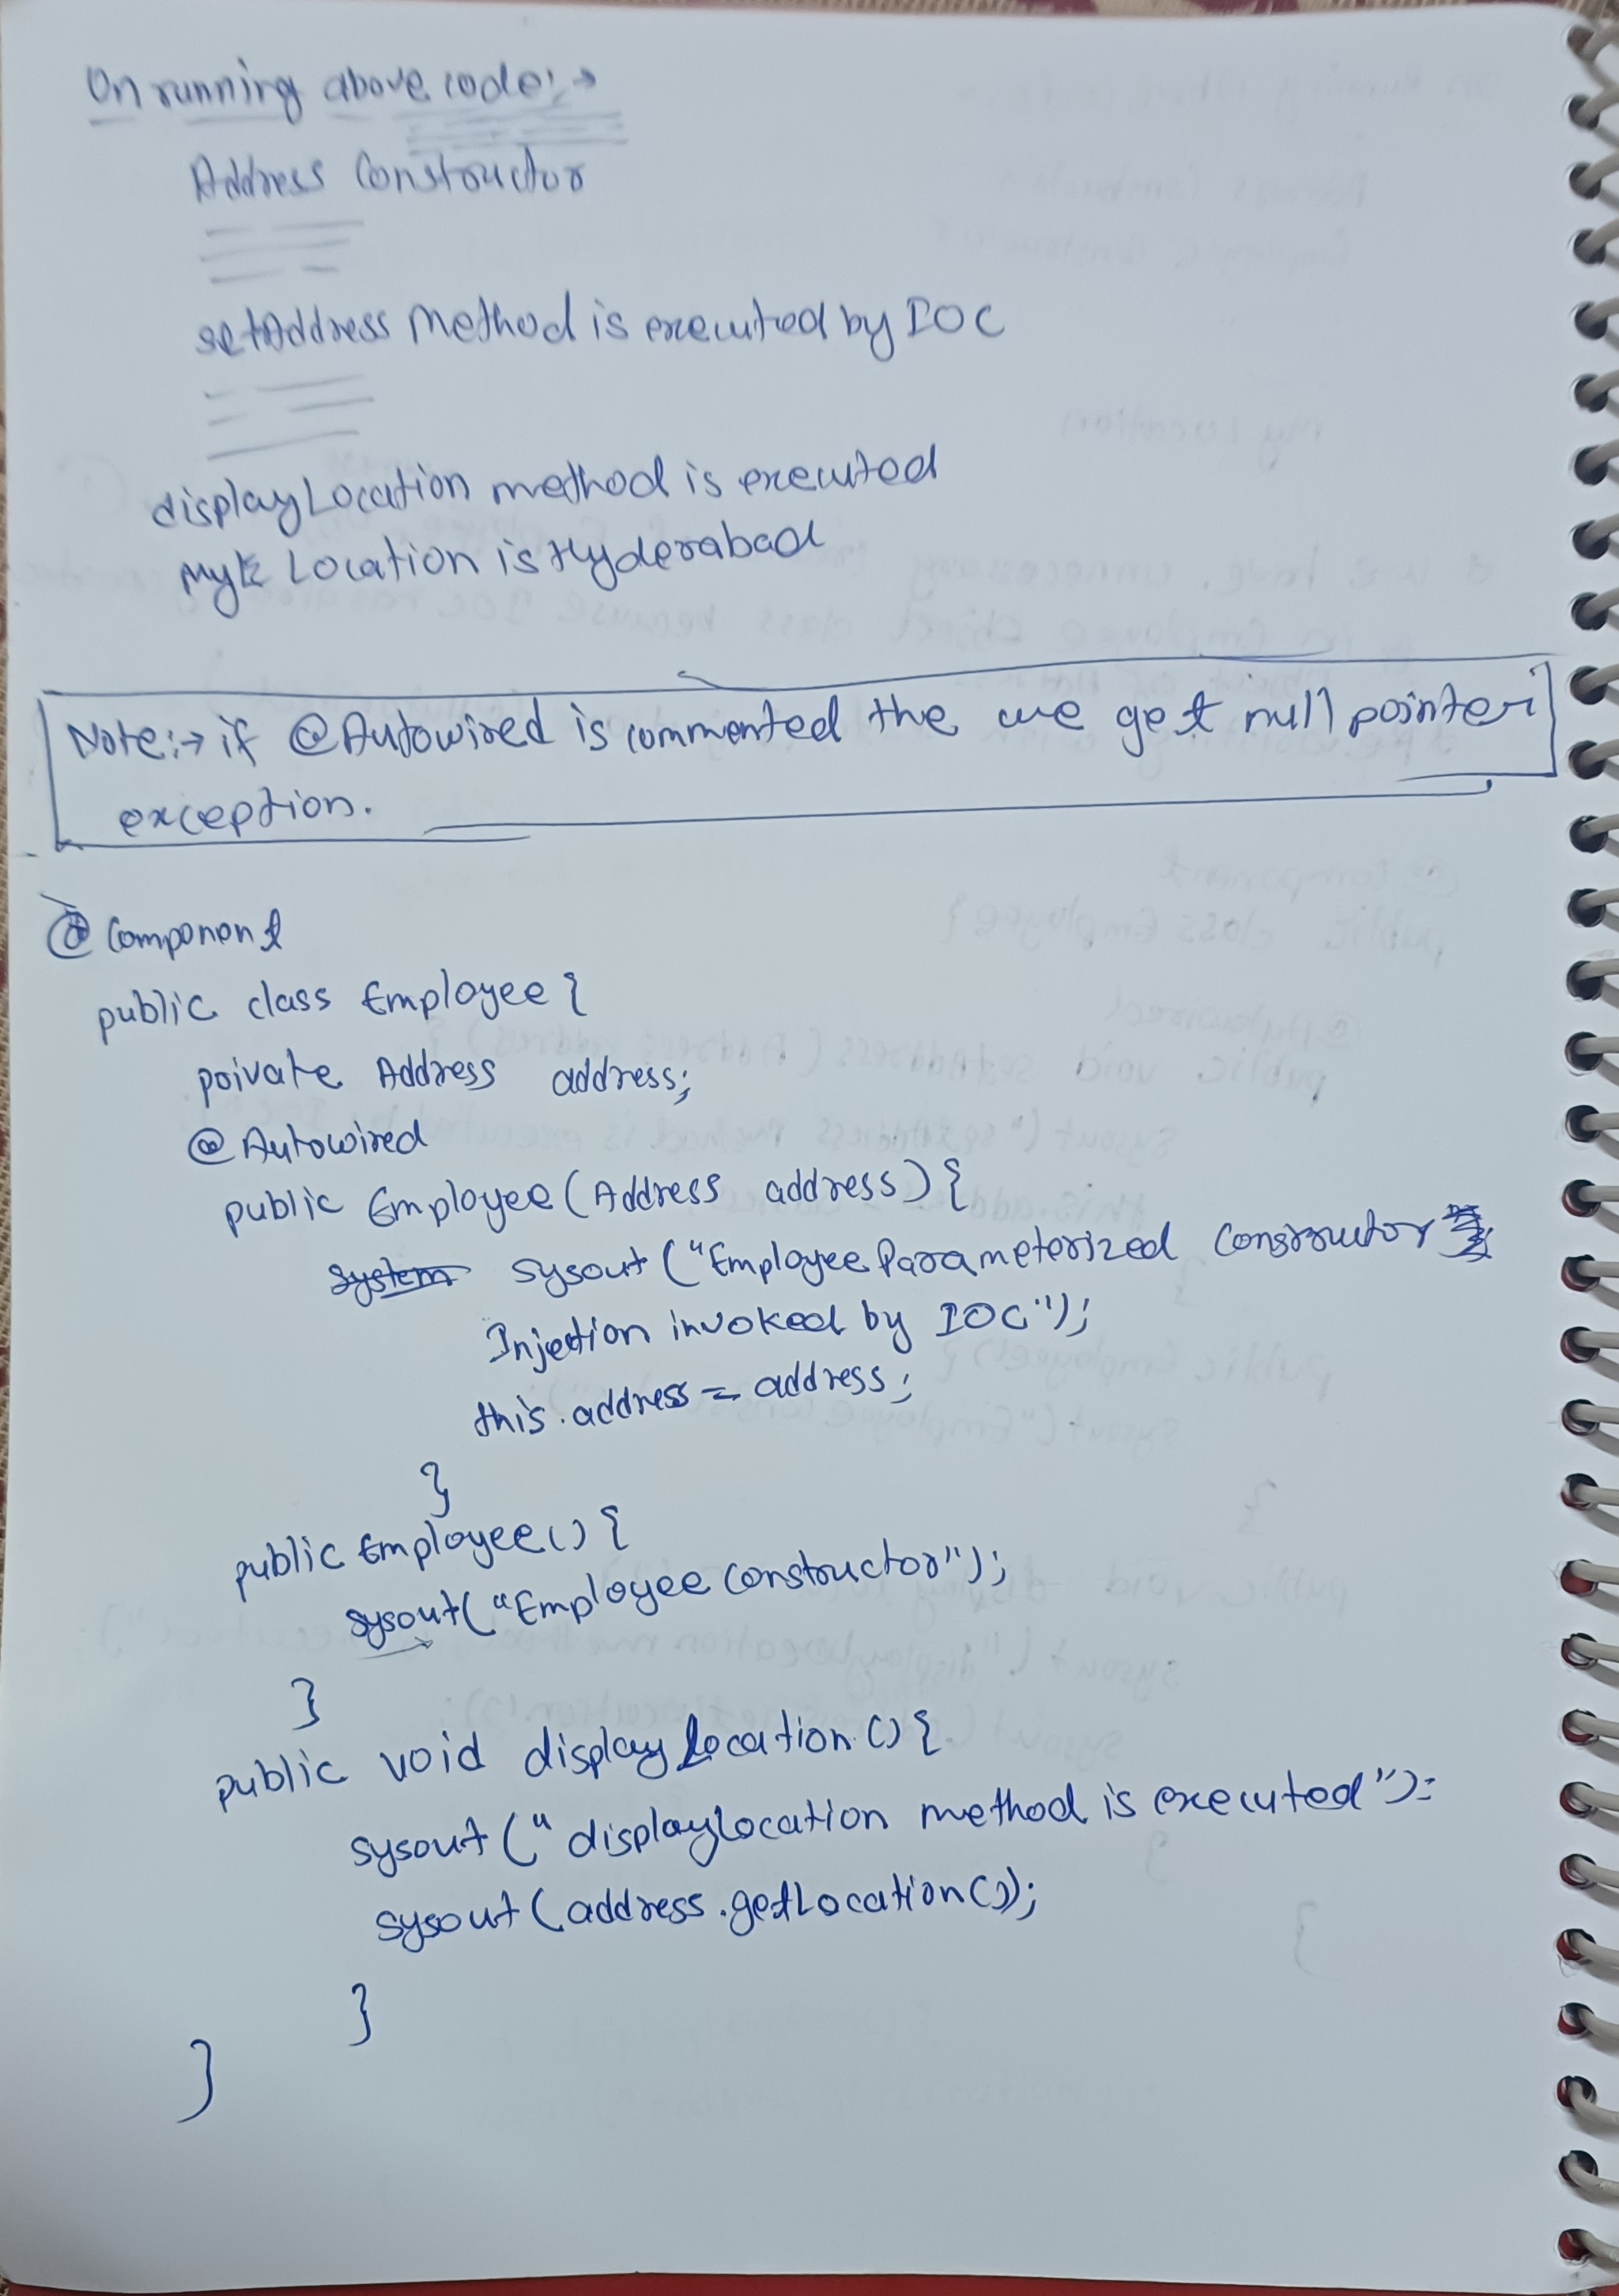 On running above code:→
Address Constructor
setAddress Method is executed by IOC
displayLocation method is executed
My Location is Hyderabad
Note:→ if @Autowired is commented the we get null pointer
exception.
@Component
public class Employee {
private Address address;
@Autowired
public Employee(Address address){
system sysout ("Employee Parameterized Constructor
Injection invoked by IOC");
this.address = address;
}
public Employee() {
sysout("Employee Constructor");
}
public void displayLocation() {
sysout ("displaylocation method is executed");
sysout (address.getLocation());
}
}